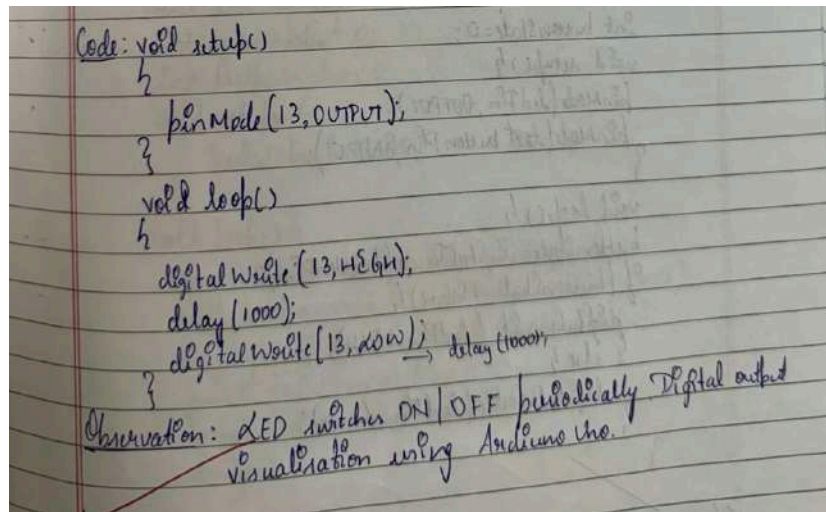 Code: void setup()
{
pinMode(13,OUTPUT);
}
void loop()
{
digitalWrite(13,HIGH);
delay(1000);
digitalWrite(13,LOW); → delay(1000);
}
Observation: LED switches ON/OFF periodically. Digital output
visualisation using Arduino Uno.